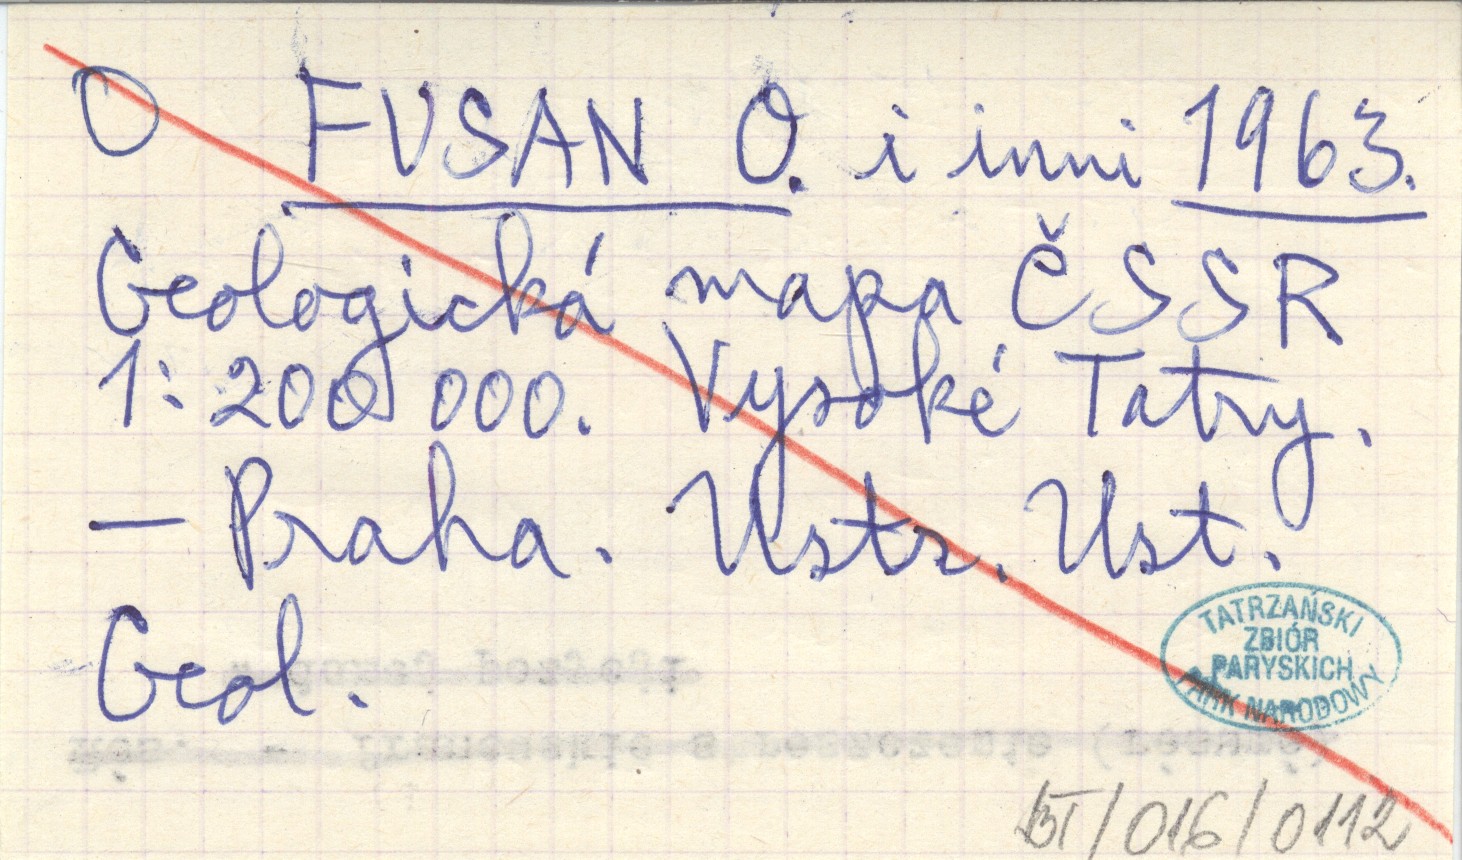 O FUSAN O. i inni 1963.
Geologická mapa ČSSR
1: 200 000. Vysoké Tatry.
— Praha. Ustr. Ust.
Geol.
TATRZAŃSKI
ZBIÓR
PARYSKICH
PARK NARODOWY
BT/016/0112